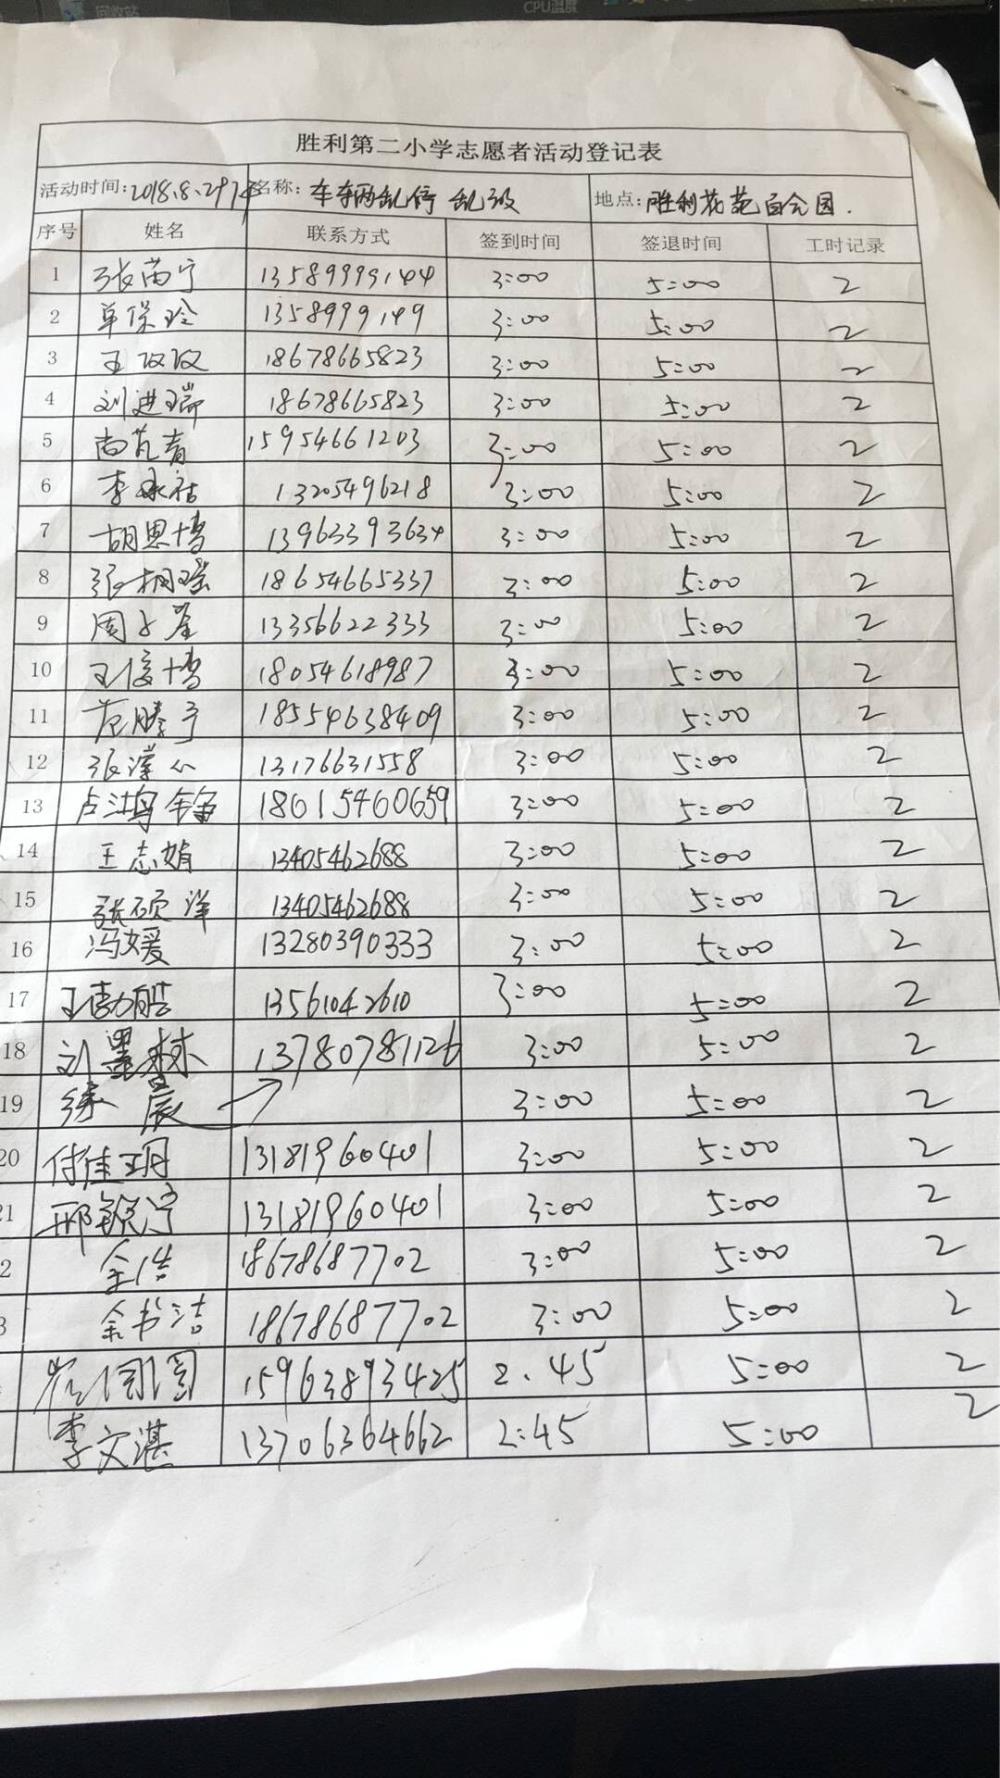 回收站 CPU温度
胜利第二小学志愿者活动登记表
活动时间:2018.8.29 名称: 车辆乱停 乱放 地点: 胜利花苑百合园.
序号 姓名 联系方式 签到时间 签退时间 工时记录
1 张芮宁 13589999144 3:00 5:00 2
2 单保玲 1358999149 3:00 5:00 2
3 王 18678665823 3:00 5:00 2
4 刘进瑞 18678665823 3:00 5:00 2
5 尚芃青 15954661203 3:00 5:00 2
6 李承祜 13205496218 3:00 5:00 2
7 胡恩博 13963393634 3:00 5:00 2
8 张桐瑞 18654665337 3:00 5:00 2
9 周子 13356622333 3:00 5:00 2
10 王俊博 18054618987 3:00 5:00 2
11 范腾予 18554638409 3:00 5:00 2
12 张 13176631558 3:00 5:00 2
13 卢鸿 18615460659 3:00 5:00 2
14 王志娟 13405462688 3:00 5:00 2
15 张硕洋 13405462688 3:00 5:00 2
16 冯媛 13280390333 3:00 5:00 2
17 王勃皓 13561042610 3:00 5:00 2
18 刘墨林 13780781126 3:00 5:00 2
19 徐辰 3:00 5:00 2
20 付佳玥 13181960401 3:00 5:00 2
21 邢锐宁 13181960401 3:00 5:00 2
2 余浩 18678687702 3:00 5:00 2
3 余书洁 18678687702 3:00 5:00 2
15963893425 2.45 5:00 2
李文湛 13706364662 2:45 5:00 2